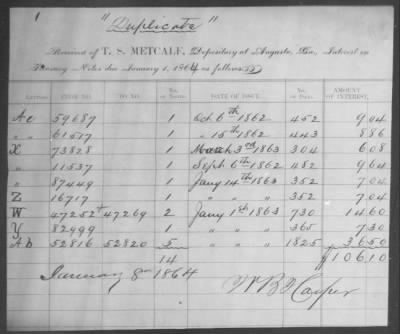 1
"Duplicate"
Received of T. S. METCALF, Depositary at Augusta, Ga., Interest on
Treasury Notes due January 1, 1864 as follows:
LETTER. FROM NO. TO NO. No. of Notes. DATE OF ISSUE. No. of Days. AMOUNT OF INTEREST.
Ac 59687 1 Oct 6th 1862 452 9 04
" " 61517 1 " 15th 1862 443 8 86
X 73828 1 March 3rd 1863 304 6 08
" 11537 1 Sept 6th 1862 482 9 64
" 87449 1 Jany 14th 1863 352 7 04
Z 16717 1 " " " 352 7 04
W 47252 + 47269 2 Jany 1st 1863 730 14 60
Y 82999 1 " " " 365 7 30
Ab 52816 52820 5 " " " 1825 36 50
14 $106 10
January 8th 1864
W B Harper